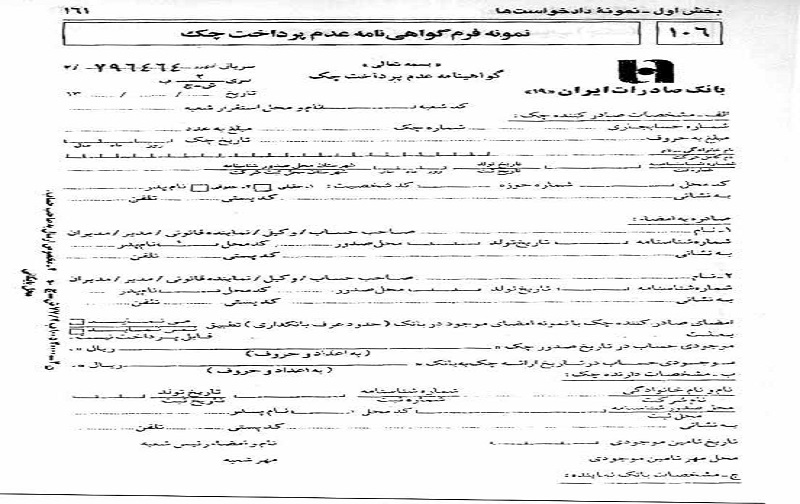 بخش اول ـ نمونهٔ دادخواست‌ها ۱۶۱
۱۰۶ نمونه فرم گواهی‌نامه عدم پرداخت چک
«بسمه تعالی»
گواهینامه عدم پرداخت چک
سریال ۷۹۶۴۶۴
سری
بانک صادرات ایران «۱۹»
تاریخ / / ۱۳
کد شعبه نام و محل استقرار شعبه
الف ـ مشخصات صادر کننده چک:
شماره حسابجاری شماره چک مبلغ به عدد
مبلغ به حروف تاریخ چک روز ماه سال
نام خانوادگی ـ نام
نام کامل شرکت
شماره شناسنامه تاریخ تولد شهرستان محل صدور شناسنامه
شماره ثبت تاریخ ثبت شهرستان محل ثبت شرکت
کد محل شماره حوزه کد شخصیت: ۱ـ حقیقی ۲ـ حقوقی نام پدر
به نشانی کد پستی تلفن
صادره به امضاء:
۱ـ نام صاحب حساب / وکیل / نماینده قانونی / مدیر / مدیران
شماره شناسنامه تاریخ تولد محل صدور کد محل نام پدر
به نشانی کد پستی تلفن
۲ـ نام صاحب حساب / وکیل / نماینده قانونی / مدیر / مدیران
شماره شناسنامه تاریخ تولد محل صدور کد محل نام پدر
به نشانی کد پستی تلفن
امضای صادر کننده چک با نمونه امضای موجود در بانک (حدود عرف بانکداری) تطبیق می نمایـد
نمی نمایـد
به علت قابل پرداخت نیست.
موجودی حساب در تاریخ صدور چک ریال
(به اعداد و حروف)
موجودی حساب در تاریخ ارائه چک به بانک ریال
(به اعداد و حروف)
ب ـ مشخصات دارنده چک:
نام و نام خانوادگی شماره شناسنامه تاریخ تولد
نام شرکت شماره ثبت تاریخ ثبت
محل صدور شناسنامه کد محل نام پدر
محل ثبت
به نشانی کد پستی تلفن
تاریخ تامین موجودی نام و امضاء رئیس شعبه
محل مهر تامین موجودی مهر شعبه
ج ـ مشخصات بانک نماینده: